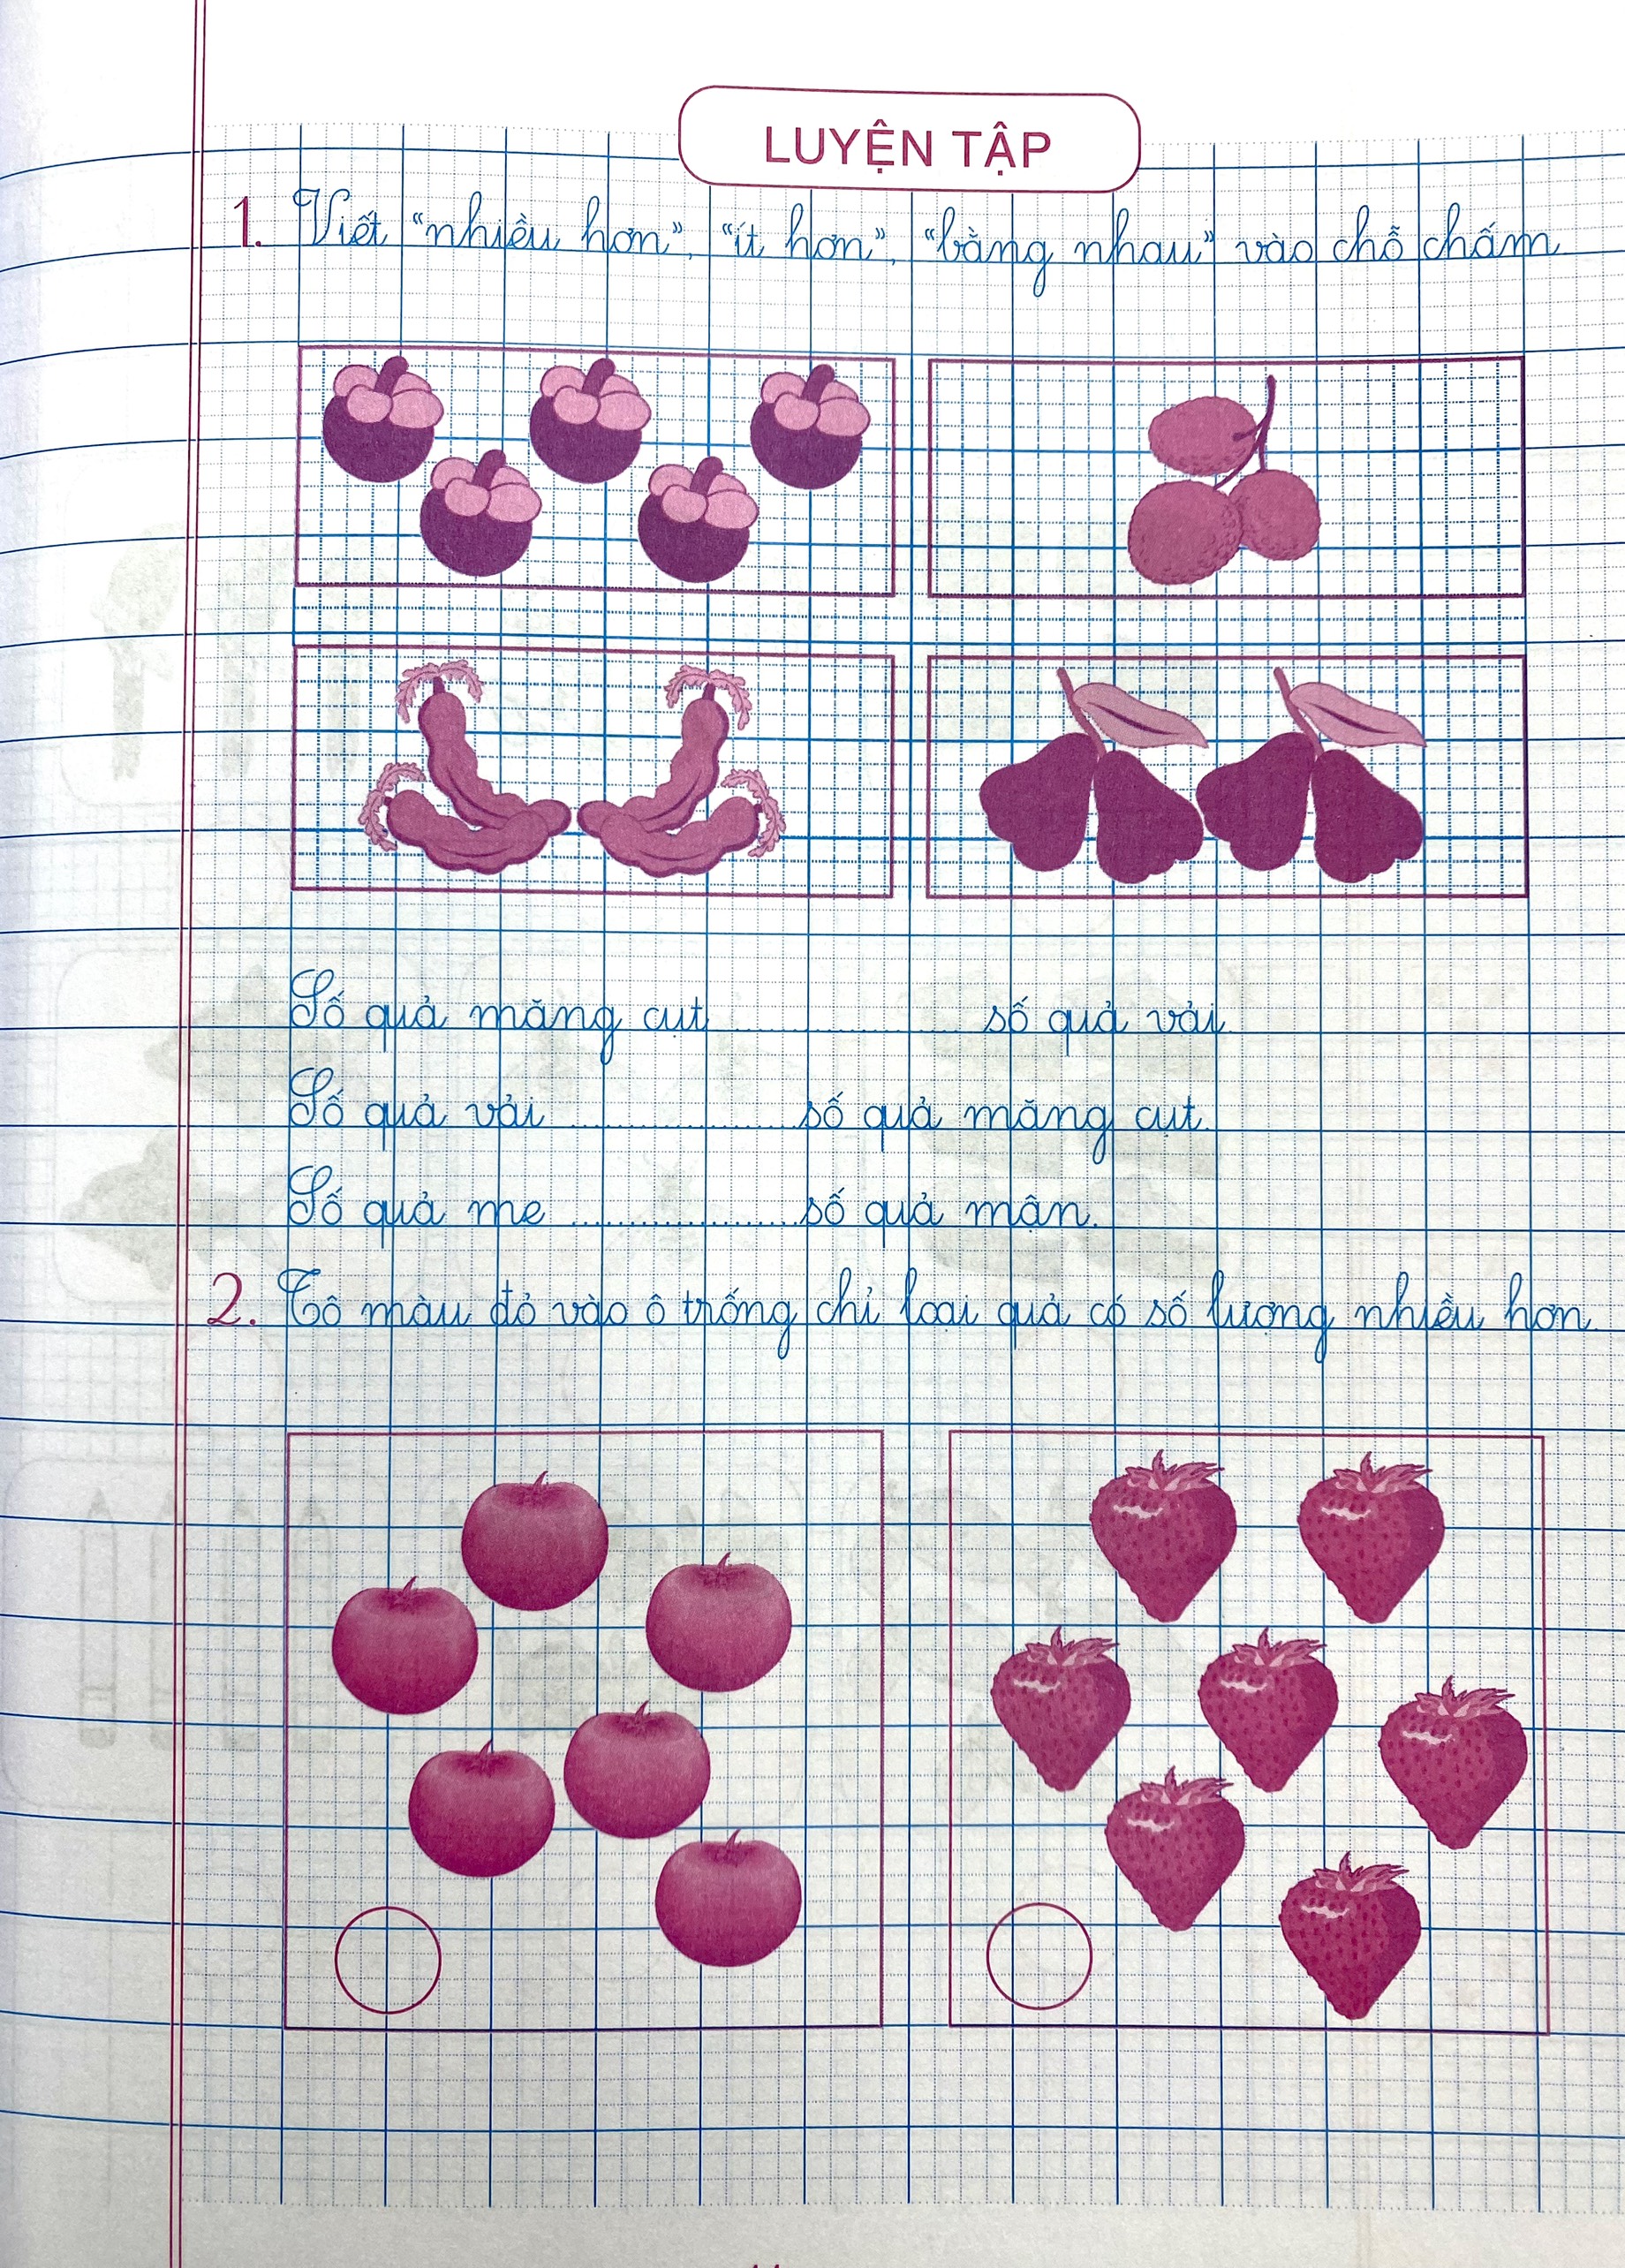 LUYỆN TẬP
1. Viết “nhiều hơn”, “ít hơn”, “bằng nhau” vào chỗ chấm.
Số quả măng cụt .................... số quả vải.
Số quả vải .................... số quả măng cụt.
Số quả me .................... số quả mận.
2. Tô màu đỏ vào ô trống chỉ loại quả có số lượng nhiều hơn.